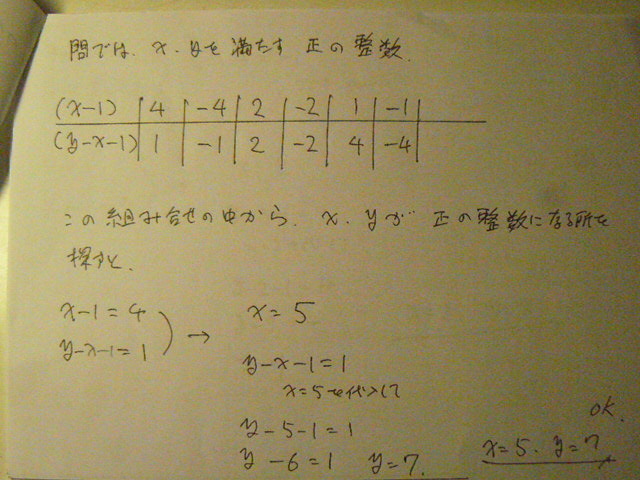 問では、x、yを満たす 正の整数.
(x-1) | 4 | -4 | 2 | -2 | 1 | -1 |
(y-x-1) | 1 | -1 | 2 | -2 | 4 | -4 |
この組み合せの中から、x、yが 正の整数になる所を
探すと、
x-1=4
y-x-1=1
→ x=5
y-x-1=1
x=5を代入して
y-5-1=1
y-6=1 y=7.
OK.
x=5、y=7